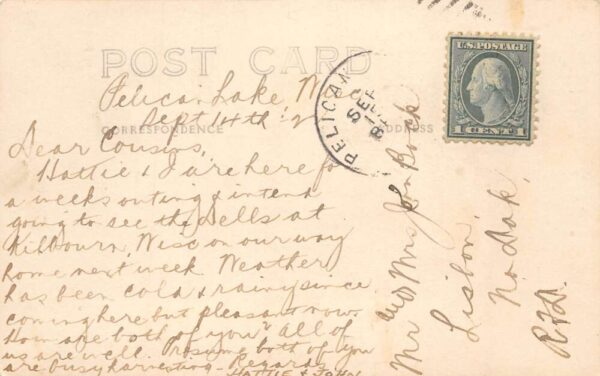 POST CARD
Pelican Lake, Wisc
Sept 14th, '2
CORRESPONDENCE
ADDRESS
Dear Cousins,
Hattie & I are here for
a weeks outing & intend
going to see the Dells at
Kilbourn, Wisc on our way
home next week. Weather
has been cold & rainy since
coming here but pleasant now.
How are both of you all of
us are well. Presume both of you
are busy harvesting - Regards
HATTIE & JOHN
PELICAN
SEP
U.S. POSTAGE
1 CENT 1
Mr and Mrs John Bock
Lisbon,
No Dak,
R.F.D.